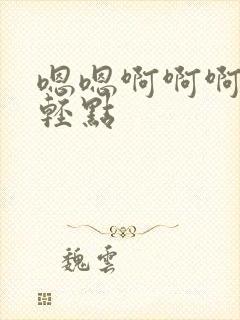 嗯嗯啊啊啊
輕點
魏雲